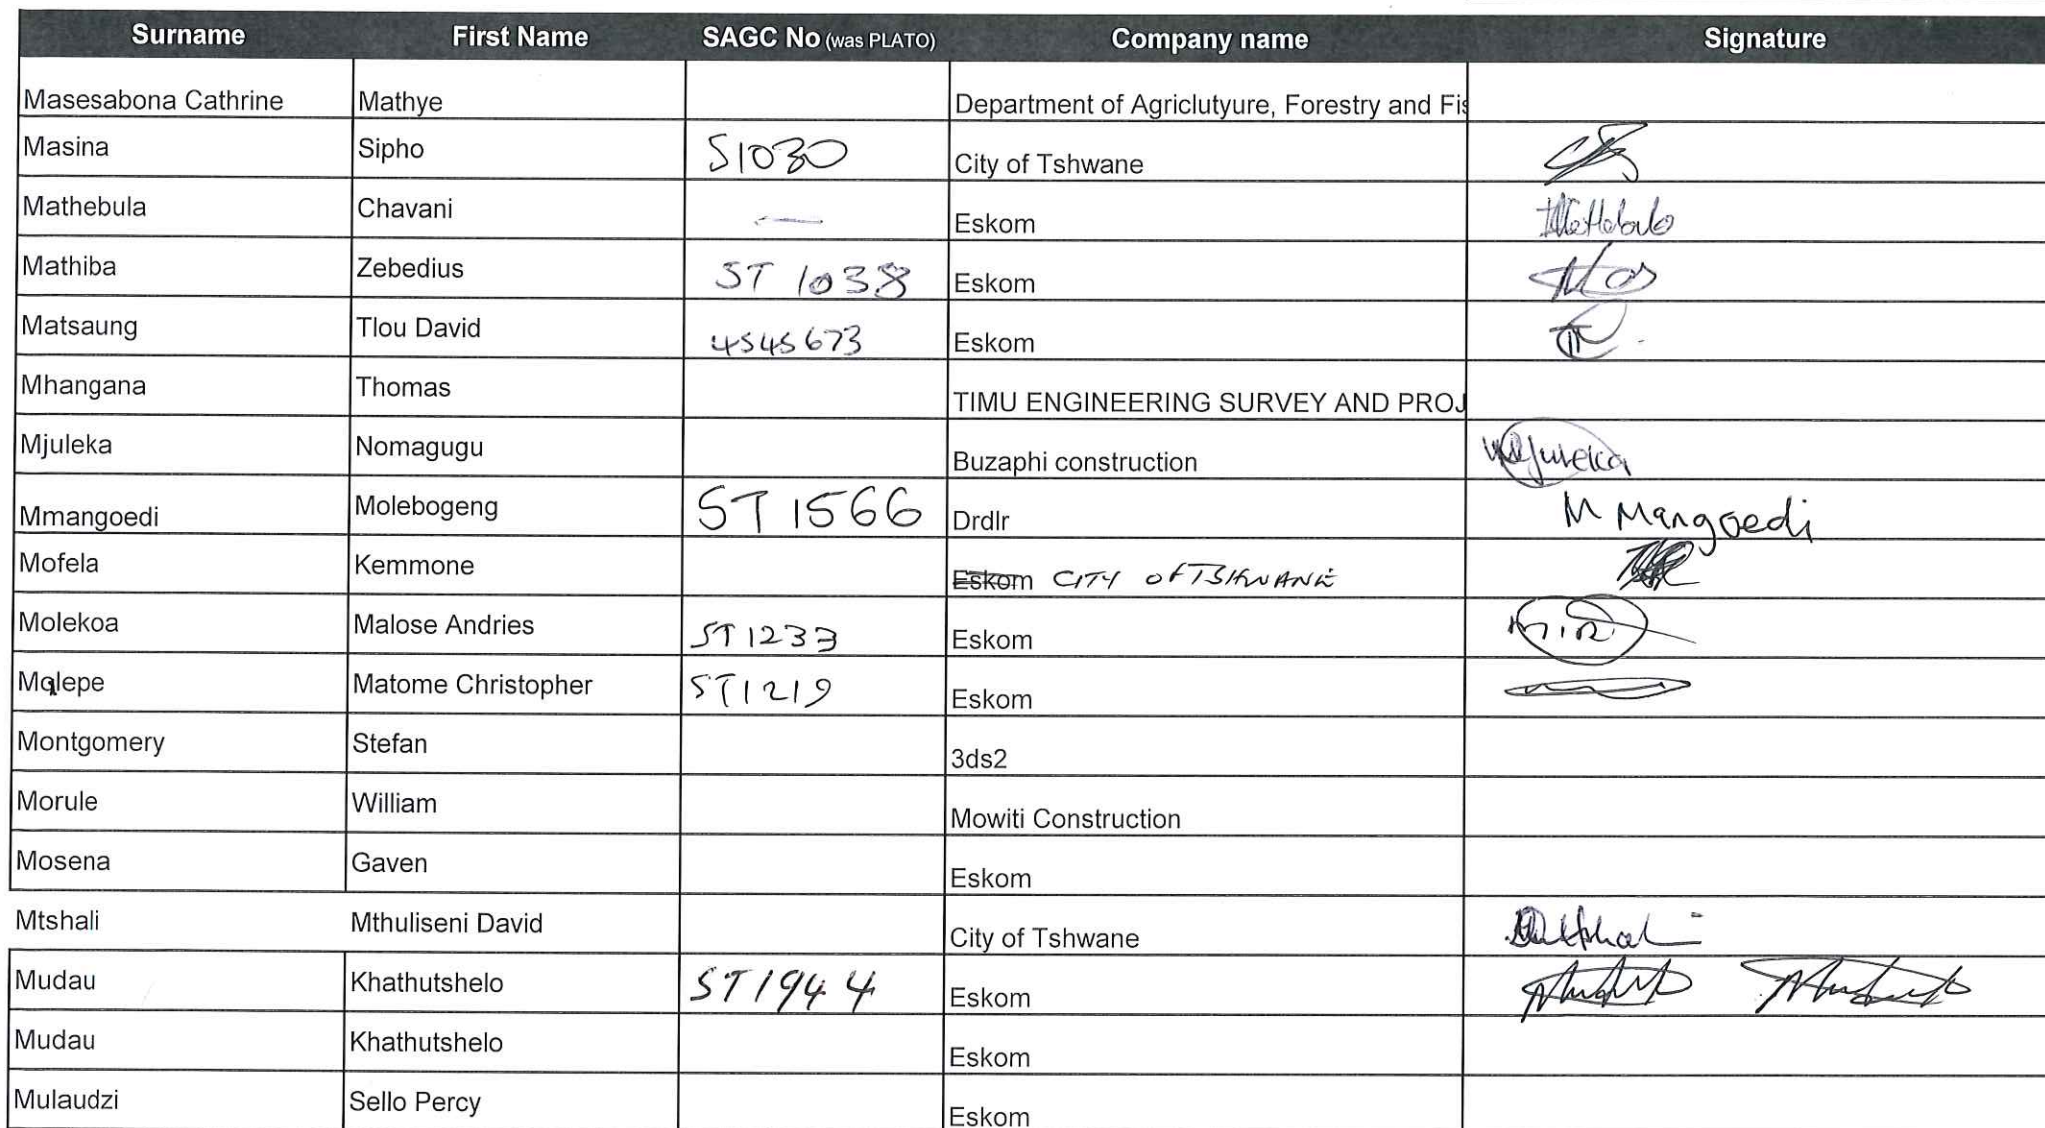 Surname First Name SAGC No (was PLATO) Company name Signature
Masesabona Cathrine Mathye Department of Agriclutyure, Forestry and Fis
Masina Sipho S1030 City of Tshwane
Mathebula Chavani — Eskom
Mathiba Zebedius ST 1038 Eskom
Matsaung Tlou David 4545673 Eskom
Mhangana Thomas TIMU ENGINEERING SURVEY AND PROJ
Mjuleka Nomagugu Buzaphi construction Mjuleka
Mmangoedi Molebogeng ST 1566 Drdlr M Mangoedi
Mofela Kemmone Eskom CITY OF TSHWANE
Molekoa Malose Andries ST1233 Eskom
Malepe Matome Christopher ST1219 Eskom
Montgomery Stefan 3ds2
Morule William Mowiti Construction
Mosena Gaven Eskom
Mtshali Mthuliseni David City of Tshwane
Mudau Khathutshelo ST1944 Eskom
Mudau Khathutshelo Eskom
Mulaudzi Sello Percy Eskom